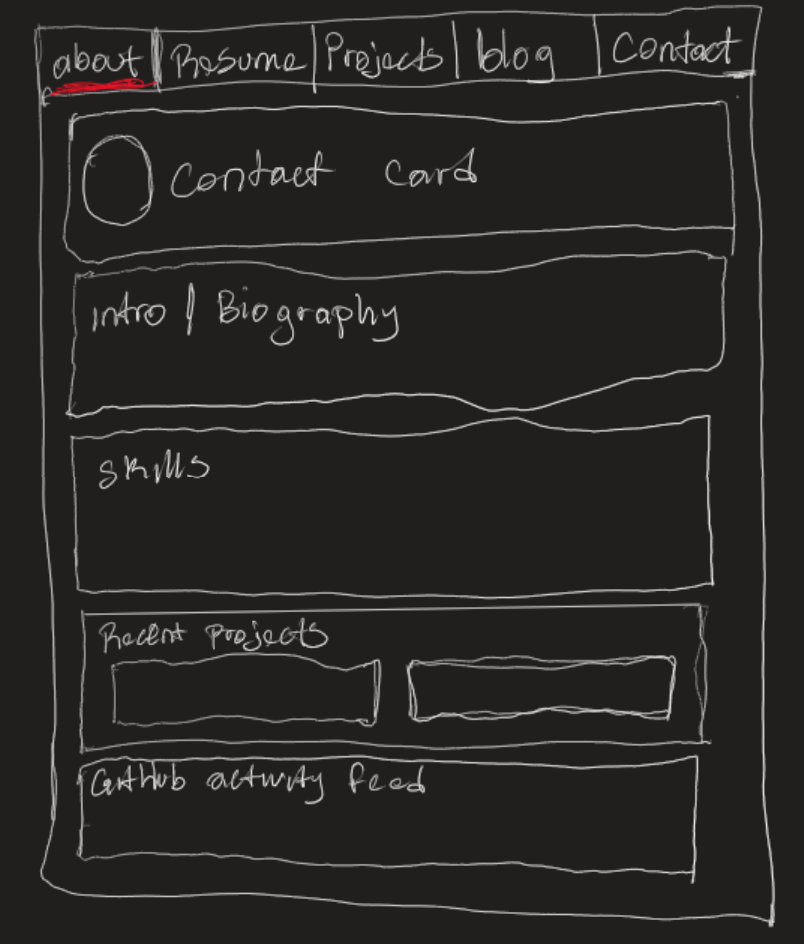 about Resume Projects blog Contact
Contact Card
intro / Biography
Skills
Recent Projects
GitHub activity feed